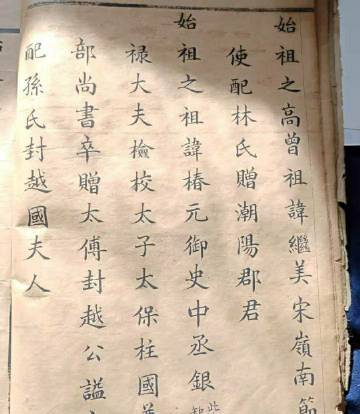 始祖之高曾祖諱繼美宋嶺南節
使配林氏贈潮陽郡君
始祖之祖諱椿元御史中丞銀
祿大夫檢校太子太保柱國
部尚書卒贈太傅封越公謚
配孫氏封越國夫人